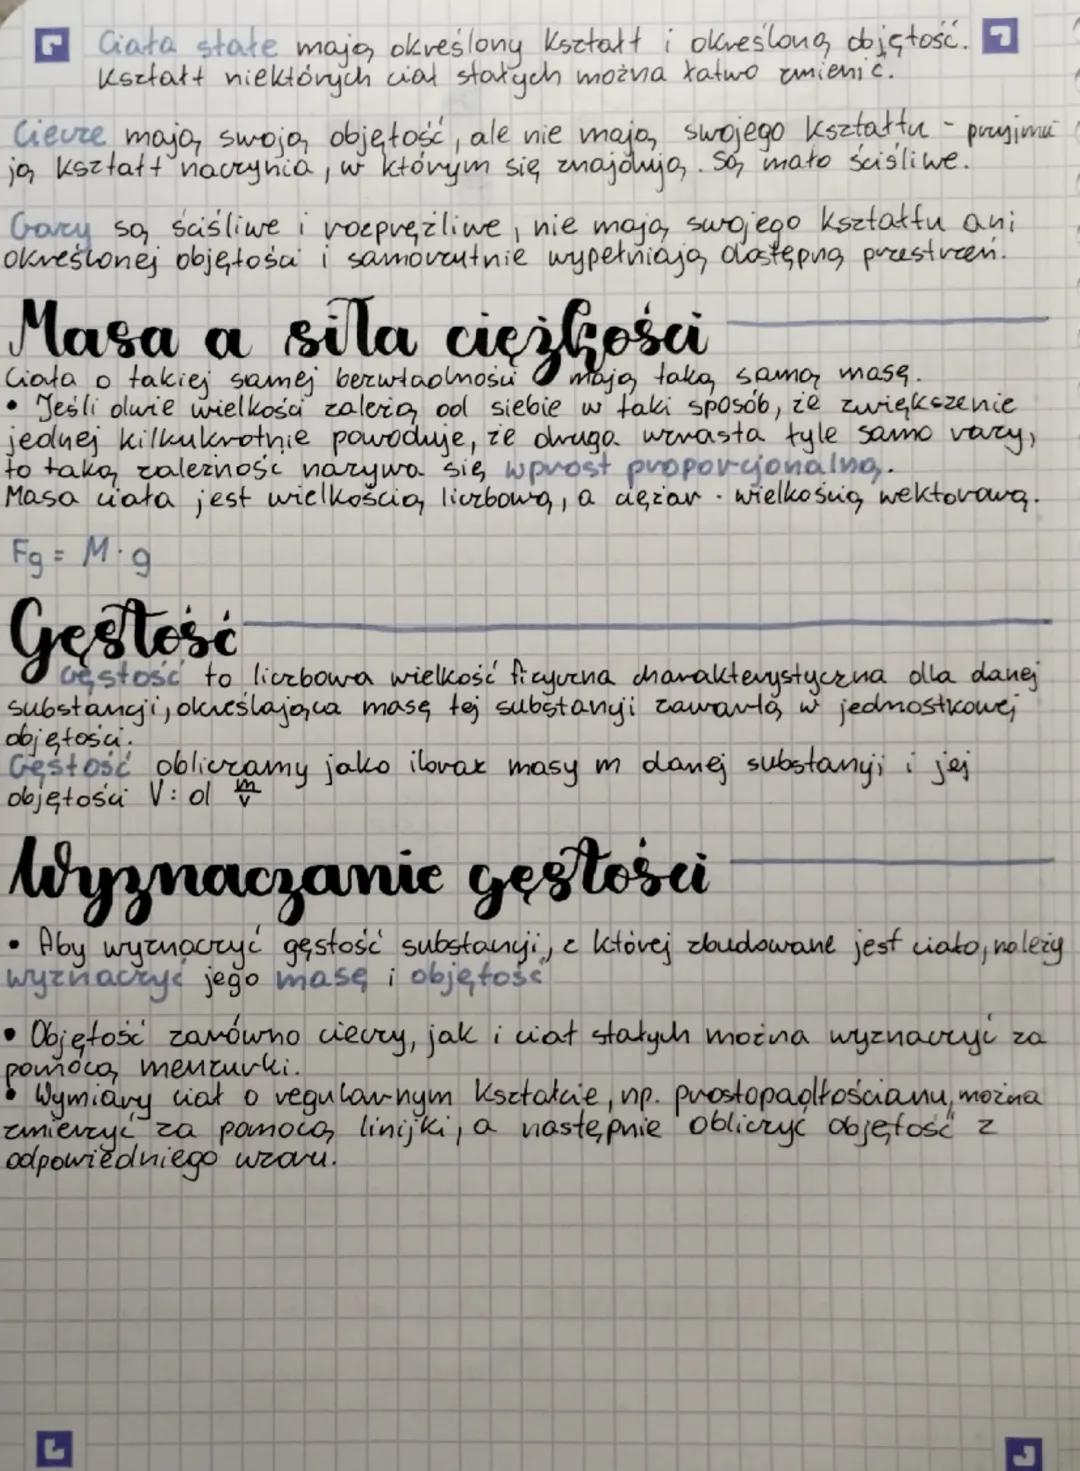 Ciała stałe mają określony kształt i określoną objętość.
Kształt niektórych ciał stałych można łatwo zmienić.
Ciecze mają swoją objętość, ale nie mają swojego kształtu - przyjmu
ją kształt naczynia, w którym się znajdują. Są mało ściśliwe.
Gazy są ściśliwe i rozprężliwe, nie mają swojego kształtu ani
określonej objętości i samorzutnie wypełniają dostępną przestrzeń.
Masa a siła ciężkości
Ciała o takiej samej bezwładności mają taką samą masę.
• Jeśli dwie wielkości zależą od siebie w taki sposób, że zwiększenie
jednej kilkukrotnie powoduje, że druga wzrasta tyle samo razy,
to taką zależność nazywa się wprost proporcjonalną.
Masa ciała jest wielkością liczbową, a ciężar - wielkością wektorową.
Fg = M · g
Gęstość
Gęstość to liczbowa wielkość fizyczna charakterystyczna dla danej
substancji, określająca masę tej substancji zawartą w jednostkowej
objętości.
Gęstość obliczamy jako iloraz masy m danej substancji i jej
objętości V: d m/v
Wyznaczanie gęstości
• Aby wyznaczyć gęstość substancji, z której zbudowane jest ciało, należy
wyznaczyć jego masę i objętość
• Objętość zarówno cieczy, jak i ciał stałych można wyznaczyć za
pomocą menzurki.
• Wymiary ciał o regularnym kształcie, np. prostopadłościanu, można
zmierzyć za pomocą linijki, a następnie obliczyć objętość z
odpowiedniego wzoru.